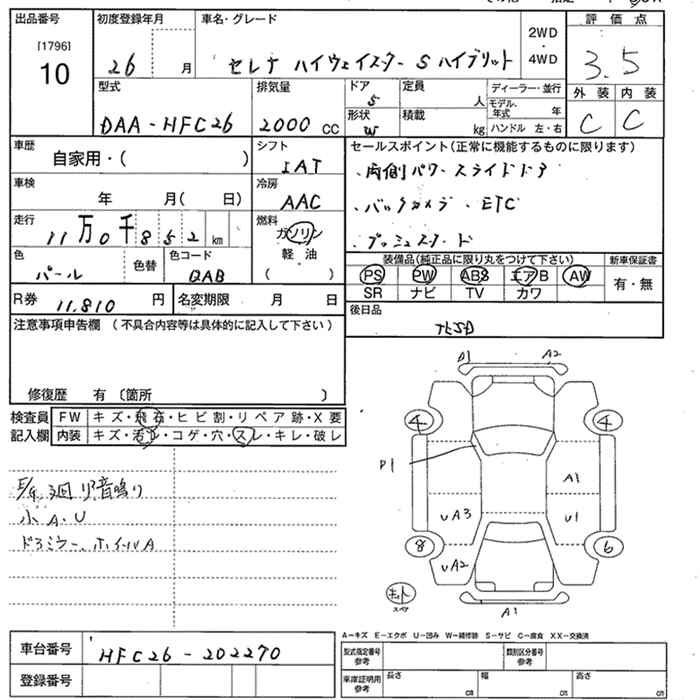 出品番号 初度登録年月 車名・グレード 2WD・4WD 評価点
[1796]
10 26 月 セレナ ハイウェイスター S ハイブリット 3.5
型式 排気量 ドア 5 定員 人 ディーラー・並行 外装 内装
DAA-HFC26 2000 CC 形状 W 積載 kg モデル年式 年 C C
ハンドル 左・右
車歴 シフト セールスポイント(正常に機能するものに限ります)
自家用・( ) IAT ・両側パワースライドドア
車検 冷房
年 月( 日) AAC ・バックカメラ・ETC
走行 燃料
11万0千852km ガソリン ・プッシュスタード
色 色替 色コード 軽油 装備品(純正品に限り丸をつけて下さい) 新車保証書
パール QAB ( ) PS PW ABS エアB AW 有・無
SR ナビ TV カワ
R券 11.810 円 名変期限 月 日
後日品
注意事項申告欄 (不具合内容等は具体的に記入して下さい)
修復歴 有 〔箇所 〕
検査員 FW キズ・飛石・ヒビ割・リペア跡・X要
記入欄 内装 キズ・汚レ・コゲ・穴・スレ・キレ・破レ
小A.U
ドアミラー、ホイールA
D1 A2
4 4
D1
A1
UA3 U1
8 6
UA2
キット
スペア
A1
A-キズ E-エクボ U-凹み W-補修跡 S-サビ C-腐食 XX-交換済
車台番号 HFC26-202270
登録番号
型式指定番号 参考 類別区分番号 参考
車庫証明用 参考 長さ cm 幅 cm 高さ cm